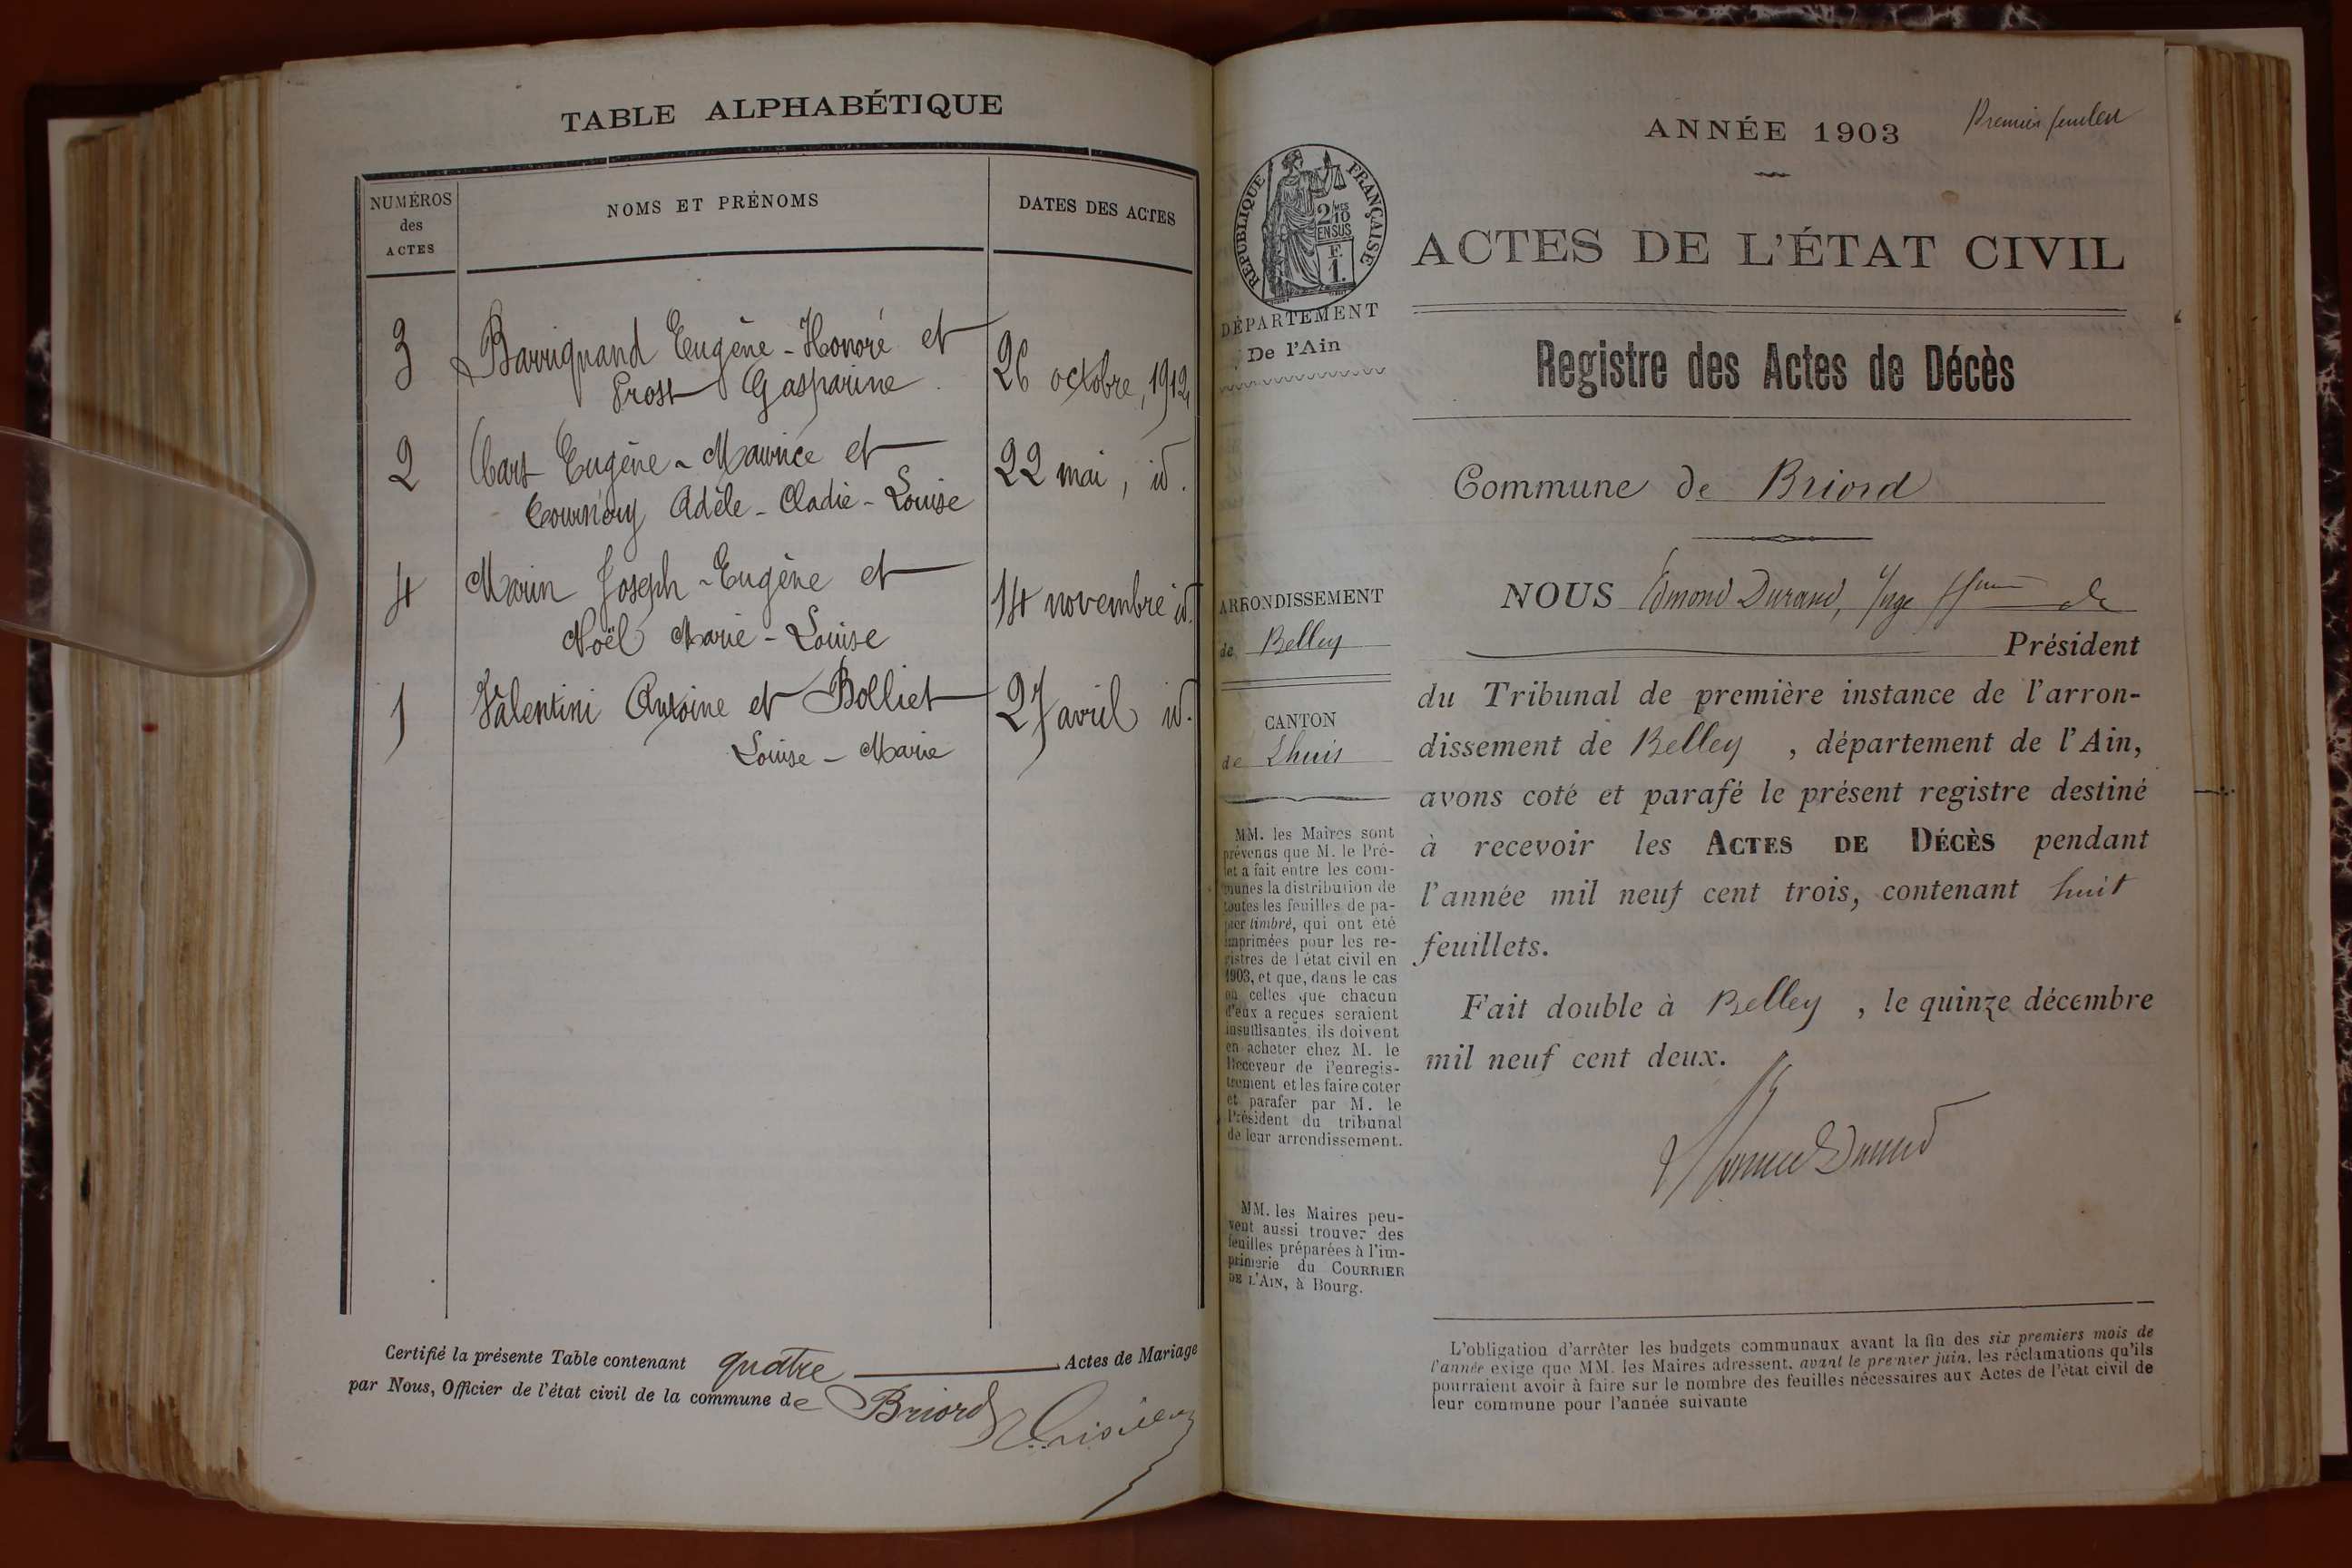 TABLE ALPHABÉTIQUE
NUMÉROS
des
ACTES
NOMS ET PRÉNOMS
DATES DES ACTES
3
Barriquand Eugène - Honoré et
Prost Gasparine
26 octobre, 1912
2
Cart Eugène - Maurice et
Adèle - Cladie - Louise
22 mai, id.
4
Marin Joseph - Eugène et
Noël Marie - Louise
14 novembre id.
1
Valentini Antoine et Bolliet
Louise - Marie
27 avril id.
Certifié la présente Table contenant quatre Actes de Mariage
par Nous, Officier de l'état civil de la commune de Briord
ANNÉE 1903
Premier feuillet
RÉPUBLIQUE FRANÇAISE
2/10
MES
EN SUS
F.
1.
ACTES DE L'ÉTAT CIVIL
DÉPARTEMENT
De l'Ain
Registre des Actes de Décès
Commune de Briord
ARRONDISSEMENT
de Belley
CANTON
de Lhuis
MM. les Maires sont
prévenus que M. le Pré-
fet a fait entre les com-
munes la distribution de
toutes les feuilles de pa-
pier timbré, qui ont été
imprimées pour les re-
gistres de l'état civil en
1903, et que, dans le cas
où celles que chacun
d'eux a reçues seraient
insuffisantes, ils doivent
en acheter chez M. le
Receveur de l'enregis-
trement et les faire coter
et parafer par M. le
Président du tribunal
de leur arrondissement.
MM. les Maires peu-
vent aussi trouver des
feuilles préparées à l'im-
primerie du COURRIER
DE L'AIN, à Bourg.
NOUS Edmond Durand, Juge de
Président
du Tribunal de première instance de l'arron-
dissement de Belley, département de l'Ain,
avons coté et parafé le présent registre destiné
à recevoir les ACTES DE DÉCÈS pendant
l'année mil neuf cent trois, contenant huit
feuillets.
Fait double à Belley, le quinze décembre
mil neuf cent deux.
L'obligation d'arrêter les budgets communaux avant la fin des six premiers mois de
l'année exige que MM. les Maires adressent, avant le premier juin, les réclamations qu'ils
pourraient avoir à faire sur le nombre des feuilles nécessaires aux Actes de l'état civil de
leur commune pour l'année suivante